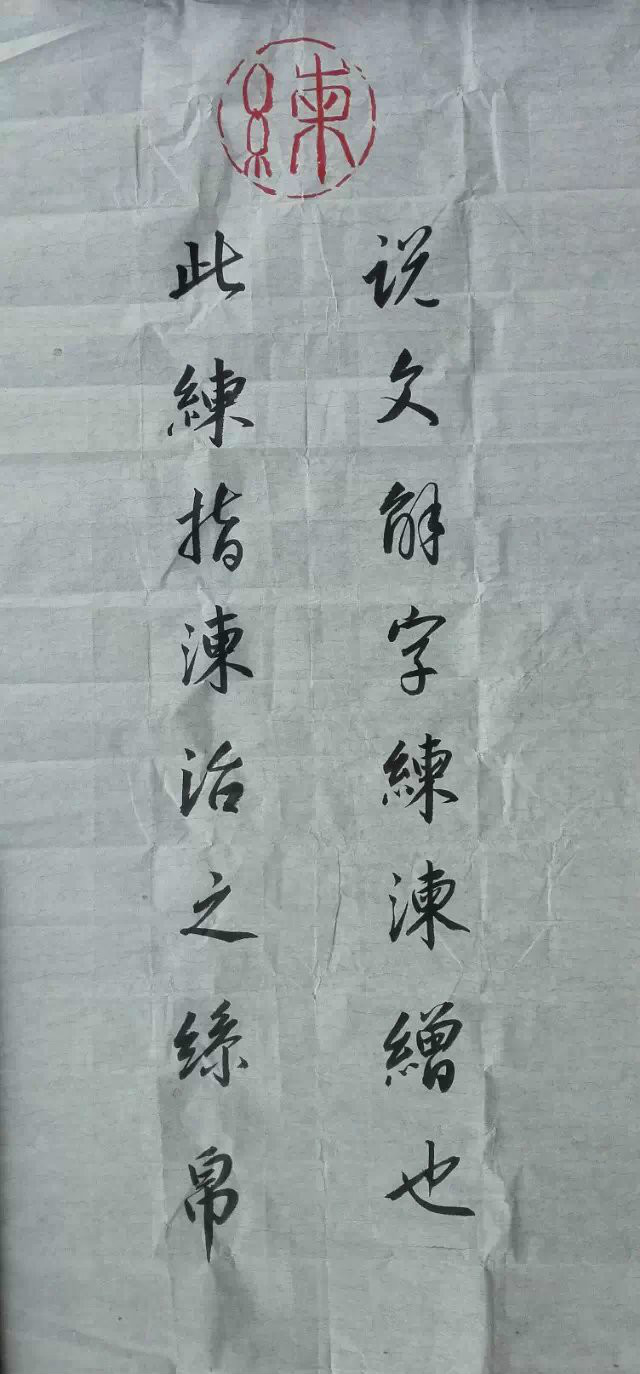 練
说文解字練湅繒也
此練指湅治之絲帛